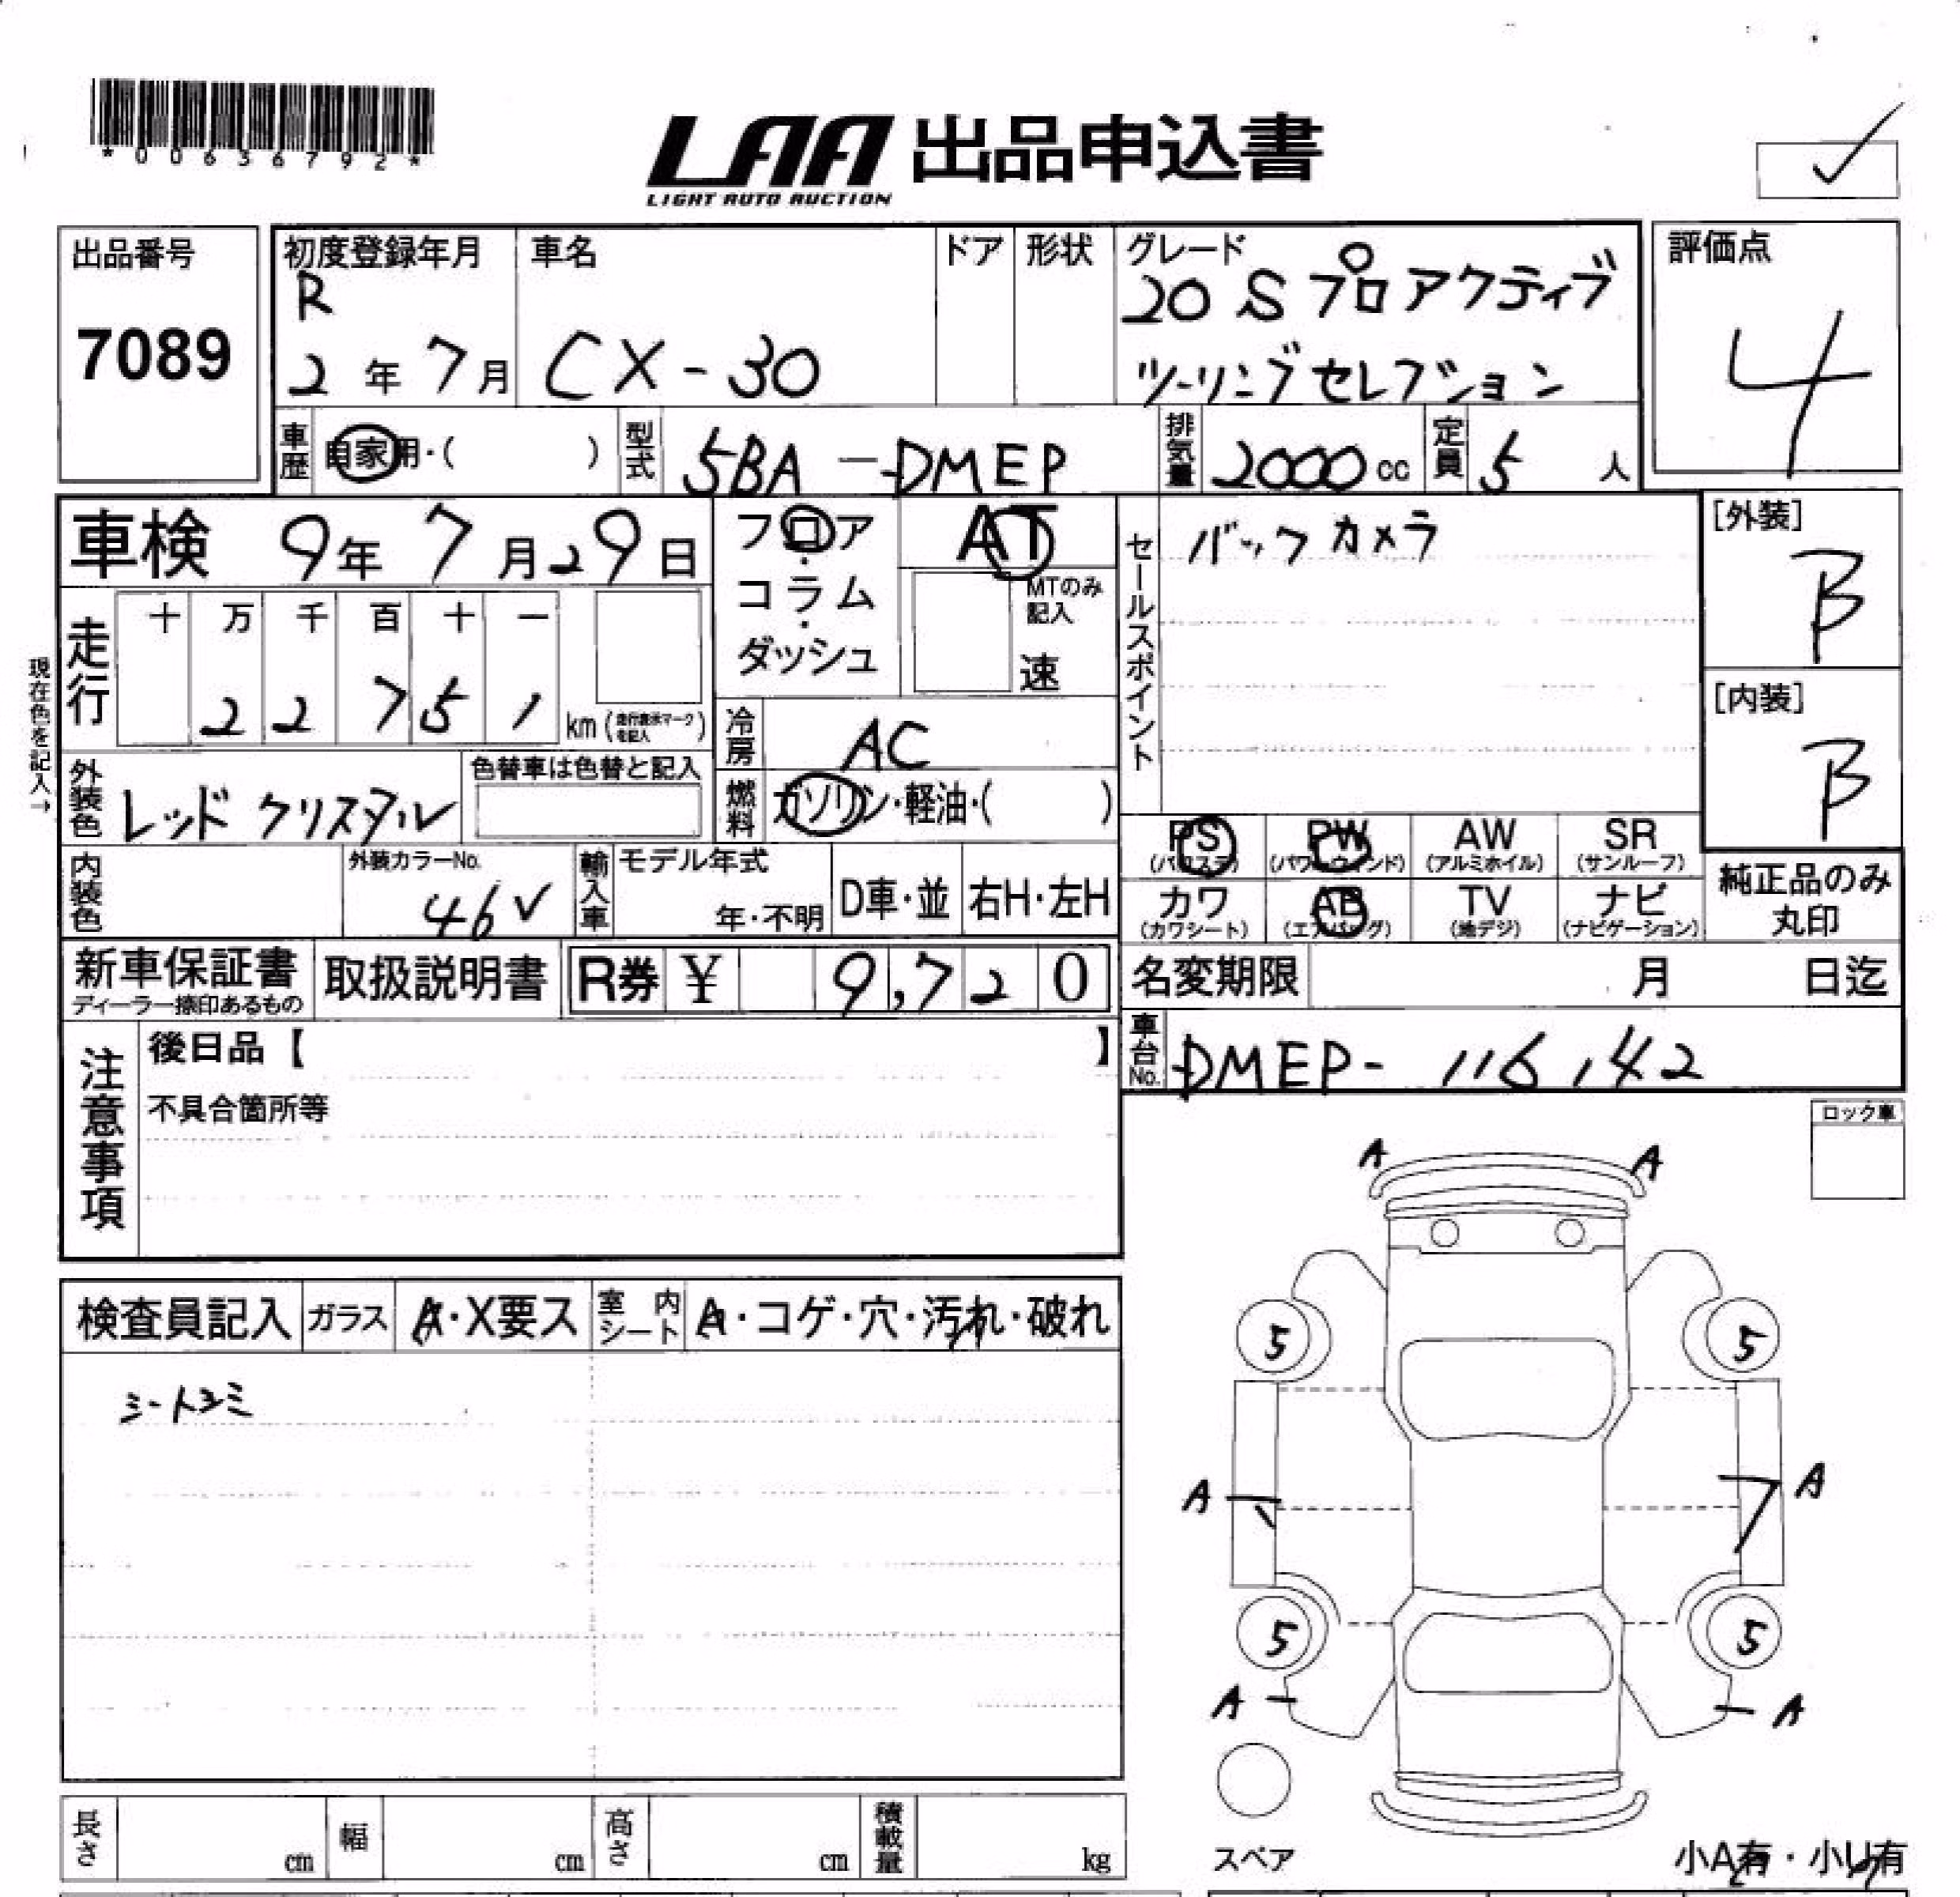 *00636792*
LAA 出品申込書
LIGHT AUTO AUCTION
出品番号
7089
初度登録年月
R
2年7月
車名
CX-30
ドア
形状
グレード
20S プロアクティブ
ツーリングセレクション
評価点
4
車歴
自家用・( )
型式
5BA-DMEP
排気量
2000 cc
定員
5人
車検 9年7月29日
フロア
・
コラム
・
ダッシュ
AT
MTのみ
記入
速
セールスポイント
バックカメラ
[外装]
B
[内装]
B
現在色を記入→
走行
十 万 千 百 十 一
2 2 7 5 1
km (走行表示マークを記入)
冷房
AC
外装色
レッド クリスタル
色替車は色替と記入
燃料
ガソリン・軽油・( )
PS
(パワステ)
PW
(パワーウィンド)
AW
(アルミホイル)
SR
(サンルーフ)
内装色
外装カラーNo.
46V
輸入車
モデル年式
年・不明
D車・並
右H・左H
カワ
(カワシート)
AB
(エアバッグ)
TV
(地デジ)
ナビ
(ナビゲーション)
純正品のみ
丸印
新車保証書
ディーラー捺印あるもの
取扱説明書
R券 ¥ 9,720
名変期限 月 日迄
注意事項
後日品【 】
不具合箇所等
車台No.
DMEP-116142
ロック車
検査員記入
ガラス
A・X要ス
室内シート
A・コゲ・穴・汚れ・破れ
A A
5 5
A A
5 5
A A
スペア
小A有・小U有
長さ cm
幅 cm
高さ cm
積載量 kg